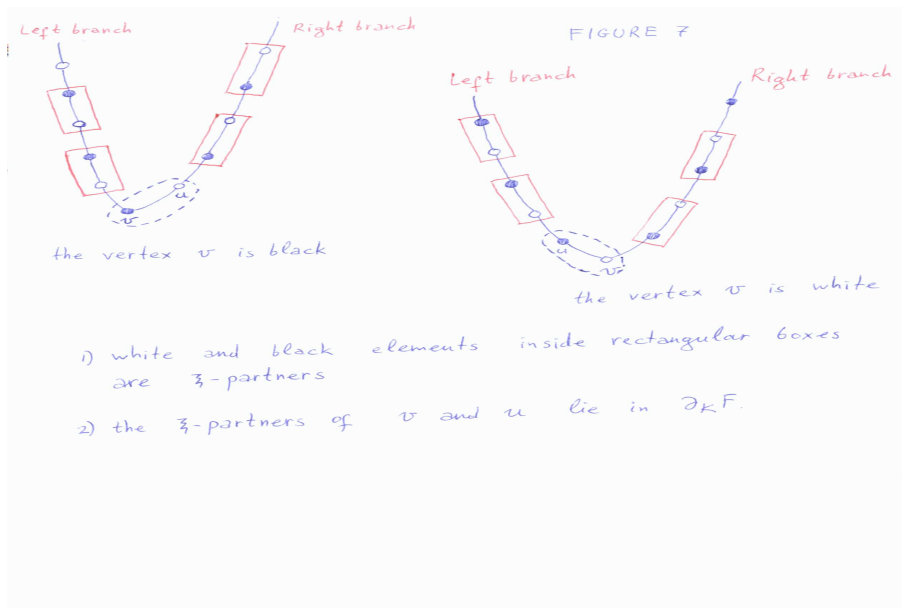 Left branch
Right branch
FIGURE 7
Left branch
Right branch
u
v
u
v
the vertex v is black
the vertex v is white
1) white and black elements inside rectangular boxes
are ξ-partners
2) the ξ-partners of v and u lie in ∂ₖF.